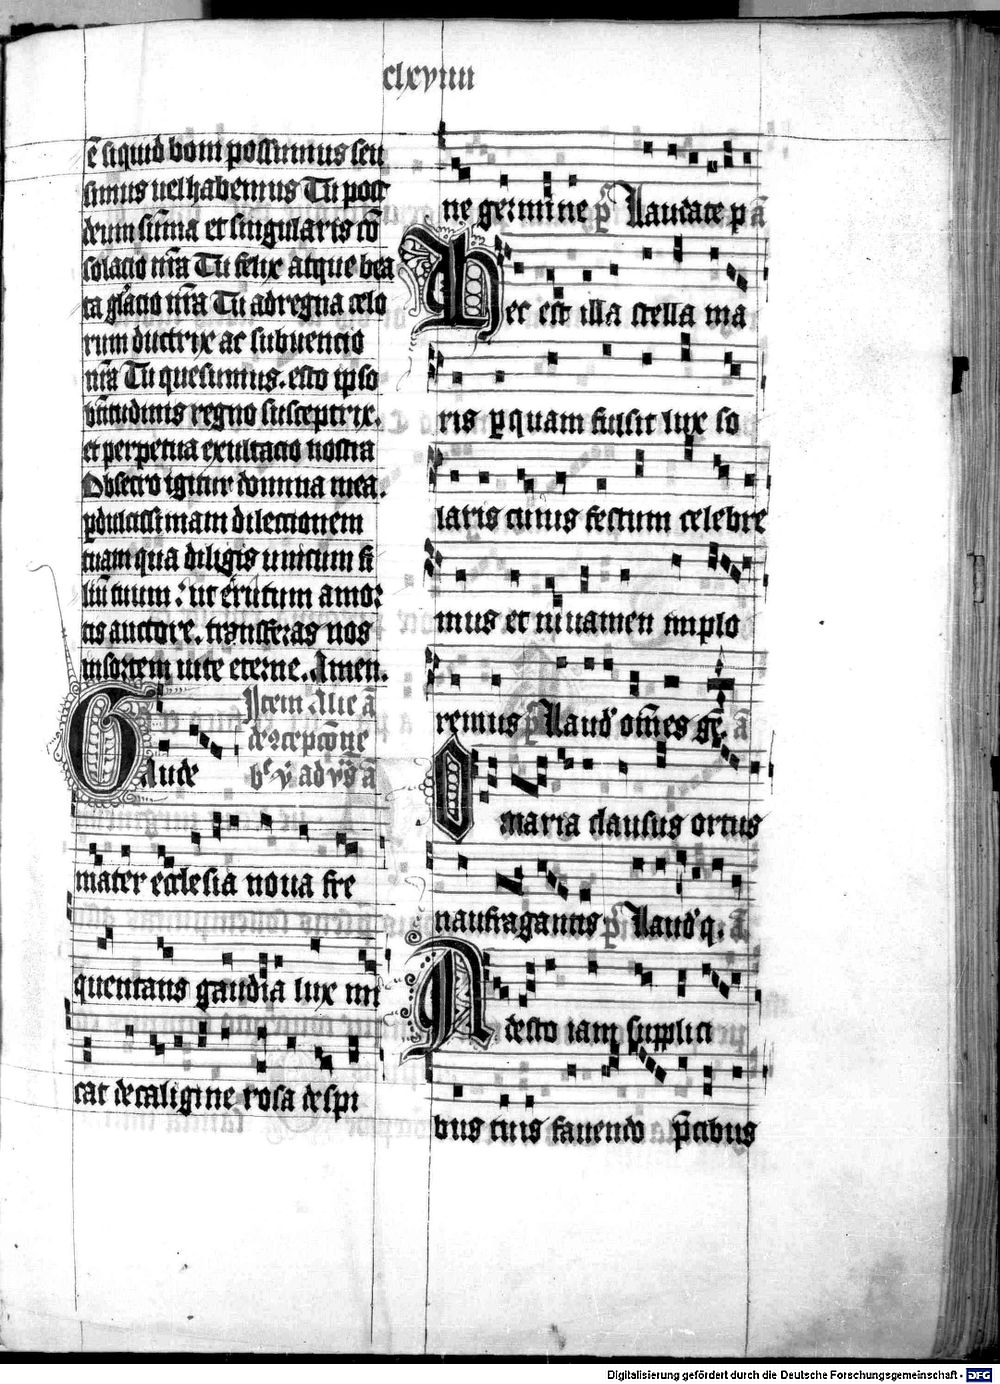 clxviiii
ē siquid boni possumus seu
sumus uel habemus Tu post
deum sūma et singularis cō
solacio nr̄a Tu felix atque bea
ta gl̄acio nr̄a Tu ad regna celo
rum ductrix ac subuencio
nr̄a Tu quesumus. esto ip̄so
et perpetua exultacio nostra
Obsecro igitur domina mea.
ꝑ dulcissimam dilectionem
tuam qua diligis unicum fi
liū tuum : ut
tis auctore. transferas nos
in sortem uite eterne. Amen.
Item Alie ā
Gaude
mater ecclesia noua fre
quentans gaudia lux mi
cat de caligine rosa de spi
ne germine pͫ Laudate p ā
Hec est illa stella ma
ris ꝑ quam fulsit lux so
laris cuius festum celebre
mus et iuuamen implo
remus pͫ Laud' om̄es gē. ā
O maria clausus ortus
naufragantis pͫ Laud' q. ā
Adesto iam supplici
bus tuis fauendo p̄cibus
Digitalisierung gefördert durch die Deutsche Forschungsgemeinschaft - DFG